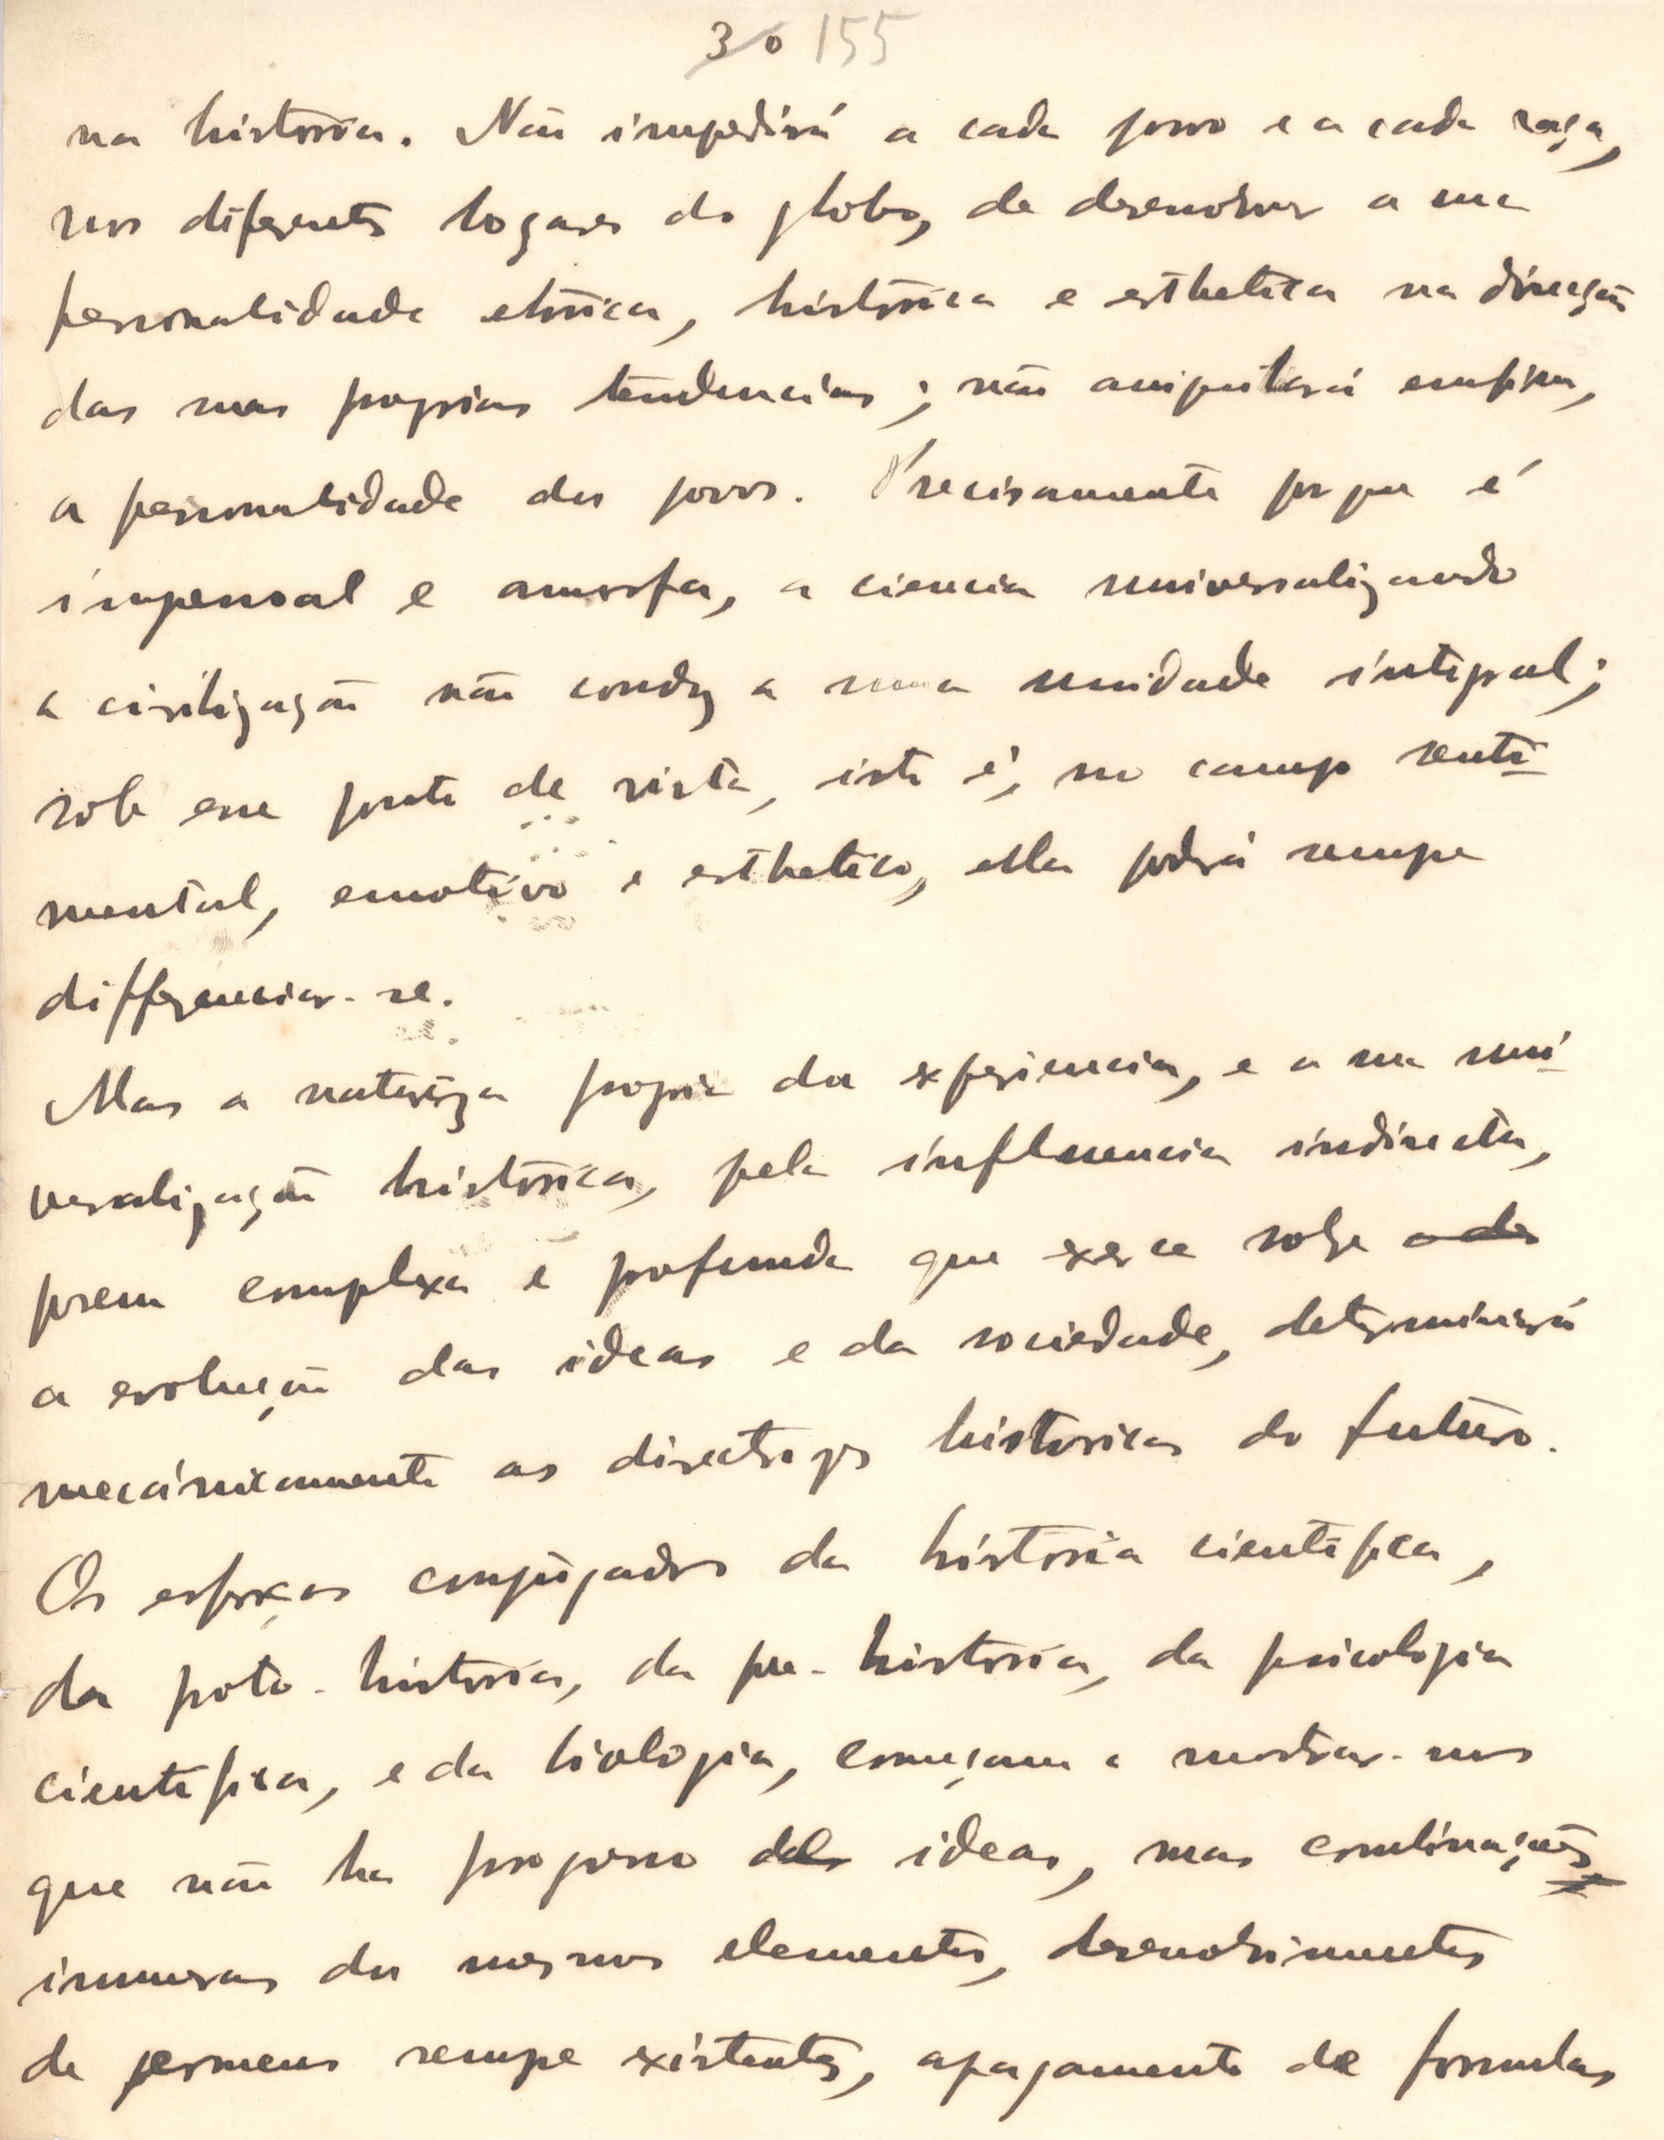 30 155
na historia. Não impedirá a cada povo e a cada raça,
nos diferentes logares do globo, de desenvolver a sua
personalidade etnica, historica e esthetica na direcção
das suas proprias tendencias; não amputará emfim,
a personalidade dos povos. Precisamente porque é
impessoal e amorfa, a ciencia universalizando
a civilização não conduz a uma unidade integral;
sob esse ponto de vista, isto é, no campo senti-
mental, emotivo e esthetico, ella poderá sempre
differenciar-se.
Mas a natureza propria da experiencia, e a sua uni-
versalização historica, pela influencia indirecta,
porem complexa e profunda que exerce sobre a das
a evolução das ideas e da sociedade, determinará
mecánicamente as directrizes historicas do futuro.
Os esforços conjugados da historia cientifica,
da proto-historia, da pre-historia, da psicologia
cientifica, e da biologia, começam a mostrar-nos
que não ha progresso das ideas, mas combinações
inumeras dos mesmos elementos, desenvolvimentos
de germens sempre existentes, apagamento de formulas